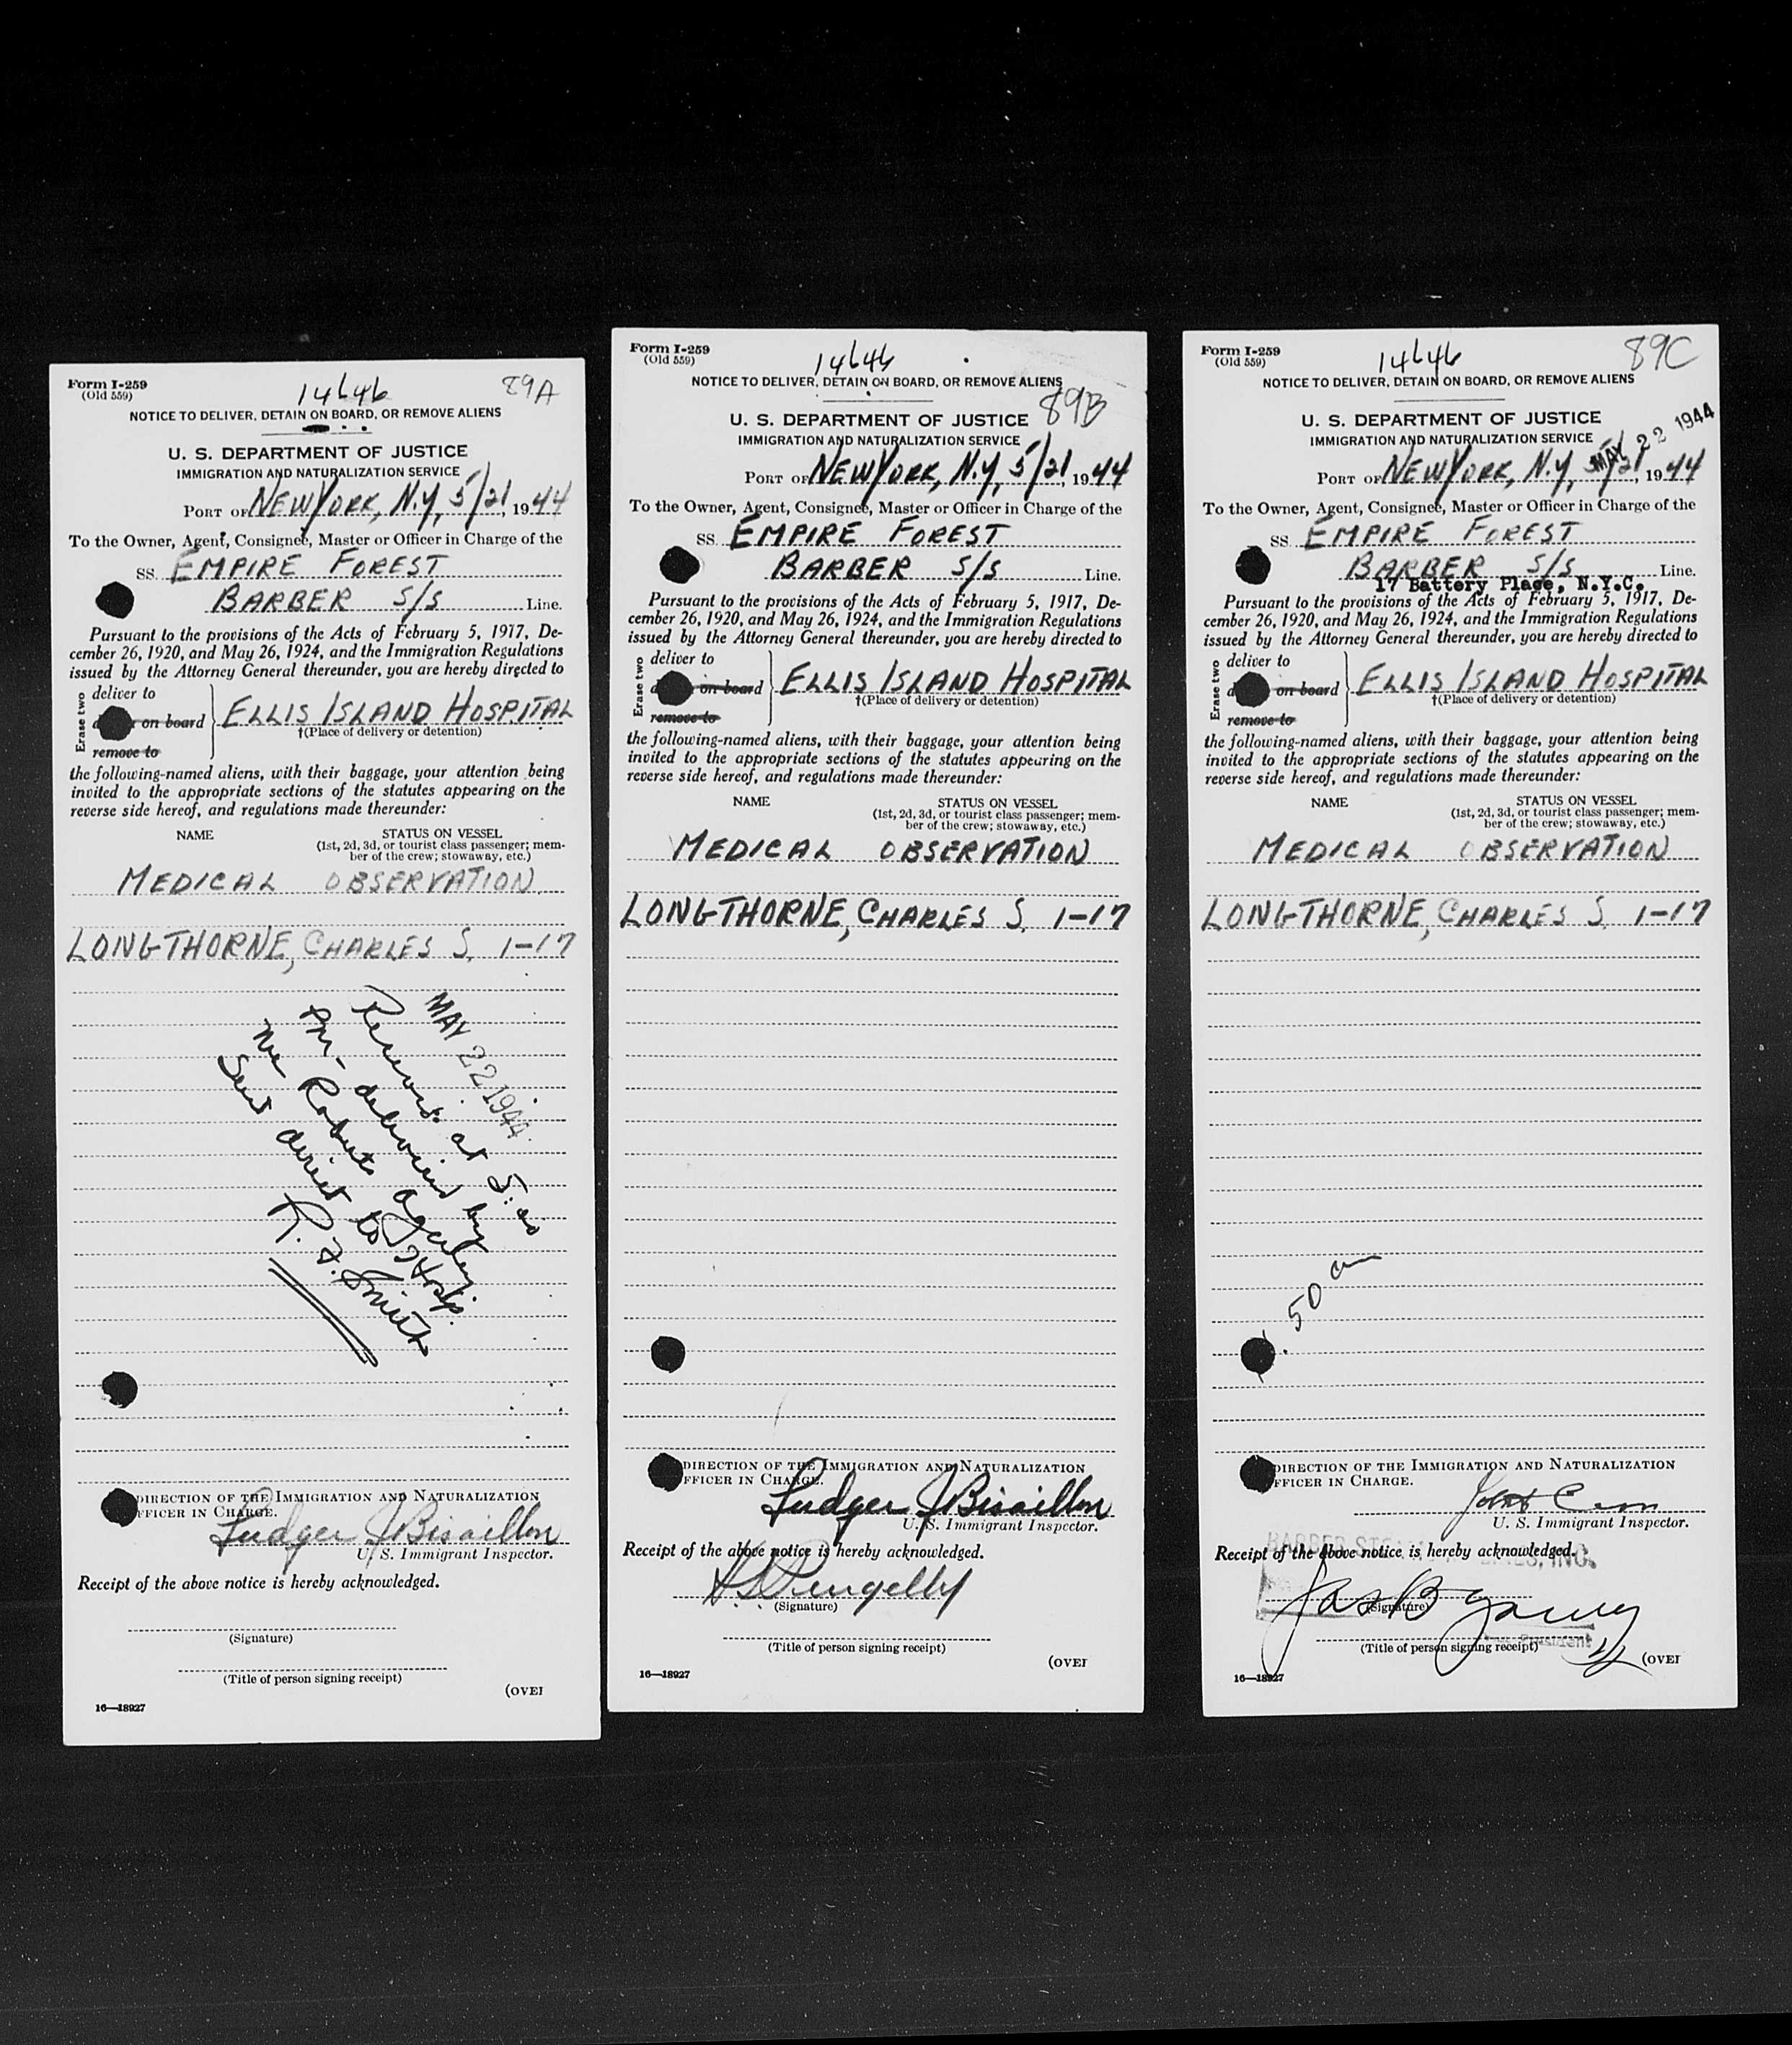 Form I-259
(Old 559)
14646
89A
NOTICE TO DELIVER, DETAIN ON BOARD, OR REMOVE ALIENS
U. S. DEPARTMENT OF JUSTICE
IMMIGRATION AND NATURALIZATION SERVICE
PORT OF NEW YORK, N.Y, 5/21, 1944
To the Owner, Agent, Consignee, Master or Officer in Charge of the
SS. EMPIRE FOREST
BARBER S/S Line.
Pursuant to the provisions of the Acts of February 5, 1917, De-
cember 26, 1920, and May 26, 1924, and the Immigration Regulations
issued by the Attorney General thereunder, you are hereby directed to
Erase two
deliver to
on board
remove to
ELLIS ISLAND HOSPITAL
†(Place of delivery or detention)
the following-named aliens, with their baggage, your attention being
invited to the appropriate sections of the statutes appearing on the
reverse side hereof, and regulations made thereunder:
NAME STATUS ON VESSEL
(1st, 2d, 3d, or tourist class passenger; mem-
ber of the crew; stowaway, etc.)
MEDICAL OBSERVATION
LONGTHORNE, CHARLES S. 1-17
MAY 22 1944
Received at 5:00
PM- delivered by
me Roberts agency
Sent direct to Hosp.
R. F. Smith
DIRECTION OF THE IMMIGRATION AND NATURALIZATION
FFICER IN CHARGE.
Ludger J Bisaillon
U. S. Immigrant Inspector.
Receipt of the above notice is hereby acknowledged.
(Signature)
(Title of person signing receipt)
(OVER
16—18927
Form I-259
(Old 559)
14646
NOTICE TO DELIVER, DETAIN ON BOARD, OR REMOVE ALIENS
89B
U. S. DEPARTMENT OF JUSTICE
IMMIGRATION AND NATURALIZATION SERVICE
PORT OF NEW YORK, N.Y, 5/21, 1944
To the Owner, Agent, Consignee, Master or Officer in Charge of the
SS. EMPIRE FOREST
BARBER S/S Line.
Pursuant to the provisions of the Acts of February 5, 1917, De-
cember 26, 1920, and May 26, 1924, and the Immigration Regulations
issued by the Attorney General thereunder, you are hereby directed to
Erase two
deliver to
on board
remove to
ELLIS ISLAND HOSPITAL
†(Place of delivery or detention)
the following-named aliens, with their baggage, your attention being
invited to the appropriate sections of the statutes appearing on the
reverse side hereof, and regulations made thereunder:
NAME STATUS ON VESSEL
(1st, 2d, 3d, or tourist class passenger; mem-
ber of the crew; stowaway, etc.)
MEDICAL OBSERVATION
LONGTHORNE, CHARLES S. 1-17
DIRECTION OF THE IMMIGRATION AND NATURALIZATION
FFICER IN CHARGE.
Ludger J Bisaillon
U. S. Immigrant Inspector.
Receipt of the above notice is hereby acknowledged.
Pengelly
(Signature)
(Title of person signing receipt)
(OVER
16—18927
Form I-259
(Old 559)
14646
89C
NOTICE TO DELIVER, DETAIN ON BOARD, OR REMOVE ALIENS
U. S. DEPARTMENT OF JUSTICE
IMMIGRATION AND NATURALIZATION SERVICE
MAY 22 1944
PORT OF NEW YORK, N.Y, 5/21, 1944
To the Owner, Agent, Consignee, Master or Officer in Charge of the
SS. EMPIRE FOREST
BARBER S/S Line.
17 Battery Place, N.Y.C.
Pursuant to the provisions of the Acts of February 5, 1917, De-
cember 26, 1920, and May 26, 1924, and the Immigration Regulations
issued by the Attorney General thereunder, you are hereby directed to
Erase two
deliver to
on board
remove to
ELLIS ISLAND HOSPITAL
†(Place of delivery or detention)
the following-named aliens, with their baggage, your attention being
invited to the appropriate sections of the statutes appearing on the
reverse side hereof, and regulations made thereunder:
NAME STATUS ON VESSEL
(1st, 2d, 3d, or tourist class passenger; mem-
ber of the crew; stowaway, etc.)
MEDICAL OBSERVATION
LONGTHORNE, CHARLES S. 1-17
50 am
DIRECTION OF THE IMMIGRATION AND NATURALIZATION
FFICER IN CHARGE.
U. S. Immigrant Inspector.
Receipt of the above notice is hereby acknowledged.
Jas B
(Signature)
(Title of person signing receipt)
President
(OVER
16—18927